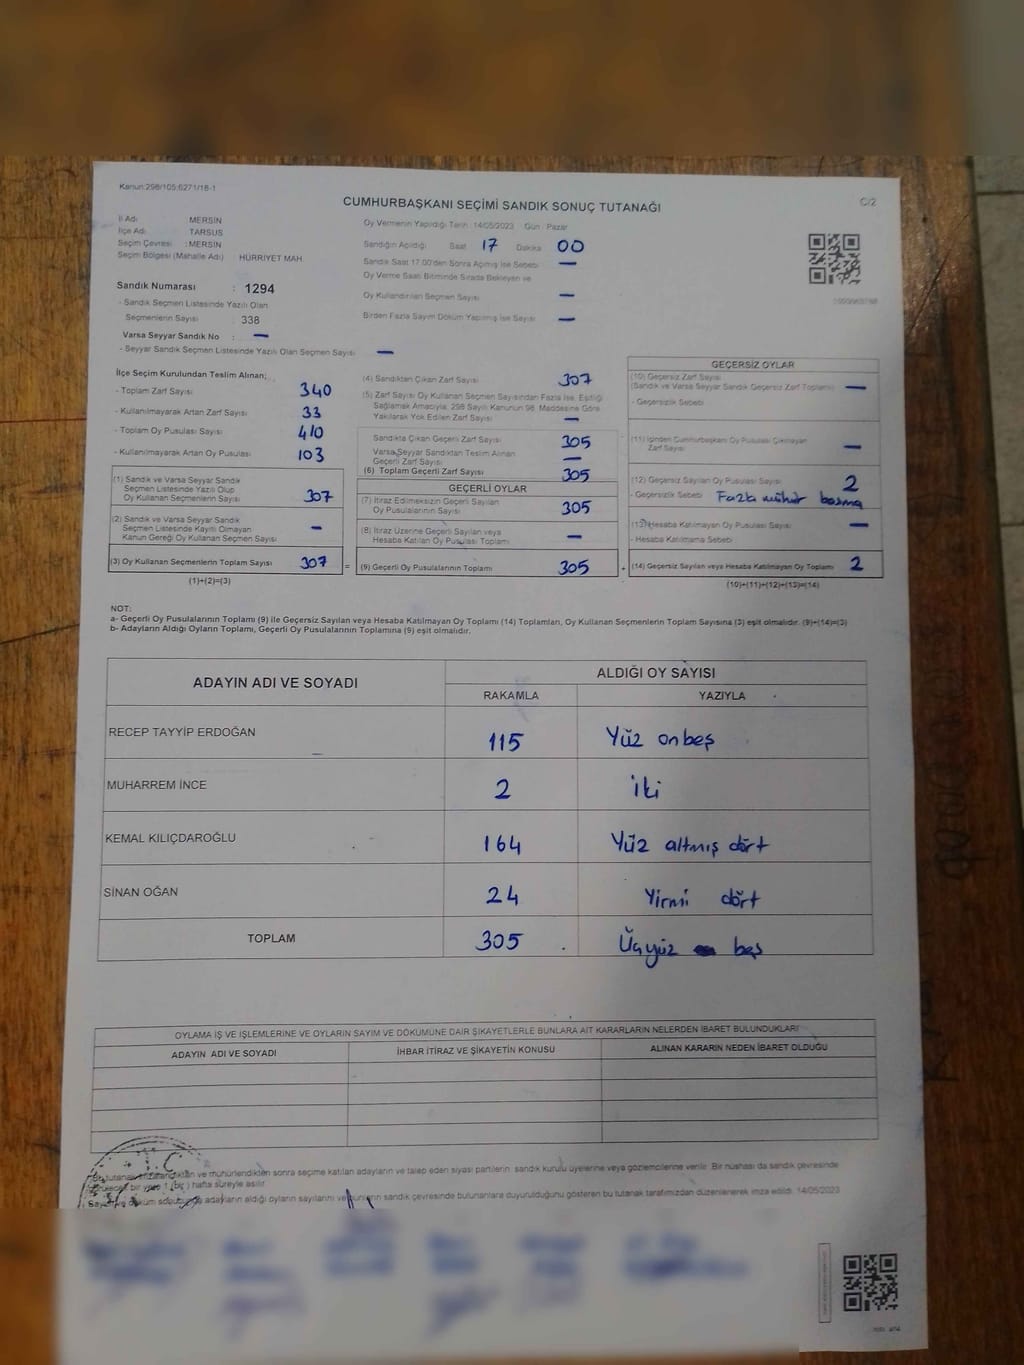 Kanun:298/105;6271/18-1
C/2
CUMHURBAŞKANI SEÇİMİ SANDIK SONUÇ TUTANAĞI
İl Adı MERSİN
İlçe Adı TARSUS
Seçim Çevresi : MERSİN
Seçim Bölgesi (Mahalle Adı) : HÜRRİYET MAH.
Sandık Numarası : 1294
- Sandık Seçmen Listesinde Yazılı Olan
Seçmenlerin Sayısı : 338
Varsa Seyyar Sandık No : —
- Seyyar Sandık Seçmen Listesinde Yazılı Olan Seçmen Sayısı —
Oy Vermenin Yapıldığı Tarih : 14/05/2023 Gün : Pazar
Sandığın Açıldığı Saat 17 Dakika 00
Sandık Saat 17.00'den Sonra Açılmış İse Sebebi —
Oy Verme Saati Bitiminde Sırada Bekleyen ve
Oy Kullandırılan Seçmen Sayısı —
Birden Fazla Sayım Döküm Yapılmış İse Sayısı —
İlçe Seçim Kurulundan Teslim Alınan;
- Toplam Zarf Sayısı 340
- Kullanılmayarak Artan Zarf Sayısı 33
- Toplam Oy Pusulası Sayısı 410
- Kullanılmayarak Artan Oy Pusulası 103
(1) Sandık ve Varsa Seyyar Sandık
Seçmen Listesinde Yazılı Olup
Oy Kullanan Seçmenlerin Sayısı 307
(2) Sandık ve Varsa Seyyar Sandık
Seçmen Listesinde Kayıtlı Olmayan
Kanun Gereği Oy Kullanan Seçmen Sayısı —
(3) Oy Kullanan Seçmenlerin Toplam Sayısı 307
(1)+(2)=(3)
(4) Sandıktan Çıkan Zarf Sayısı 307
(5) Zarf Sayısı Oy Kullanan Seçmen Sayısından Fazla İse, Eşitliği
Sağlamak Amacıyla, 298 Sayılı Kanunun 98. Maddesine Göre
Yakılarak Yok Edilen Zarf Sayısı —
Sandıkta Çıkan Geçerli Zarf Sayısı 305
Varsa Seyyar Sandıktan Teslim Alınan
Geçerli Zarf Sayısı —
(6) Toplam Geçerli Zarf Sayısı 305
GEÇERLİ OYLAR
(7) İtiraz Edilmeksizin Geçerli Sayılan
Oy Pusulalarının Sayısı 305
(8) İtiraz Üzerine Geçerli Sayılan veya
Hesaba Katılan Oy Pusulası Toplamı —
= (9) Geçerli Oy Pusulalarının Toplamı 305
GEÇERSİZ OYLAR
(10) Geçersiz Zarf Sayısı
(Sandık ve Varsa Seyyar Sandık Geçersiz Zarf Toplamı) —
- Geçersizlik Sebebi
(11) İçinden Cumhurbaşkanı Oy Pusulası Çıkmayan
Zarf Sayısı —
(12) Geçersiz Sayılan Oy Pusulası Sayısı 2
- Geçersizlik Sebebi Fazla mühür basma
(13) Hesaba Katılmayan Oy Pusulası Sayısı —
- Hesaba Katılmama Sebebi
+ (14) Geçersiz Sayılan veya Hesaba Katılmayan Oy Toplamı 2
(10)+(11)+(12)+(13)=(14)
NOT:
a- Geçerli Oy Pusulalarının Toplamı (9) ile Geçersiz Sayılan veya Hesaba Katılmayan Oy Toplamı (14) Toplamları, Oy Kullanan Seçmenlerin Toplam Sayısına (3) eşit olmalıdır. (9)+(14)=(3)
b- Adayların Aldığı Oyların Toplamı, Geçerli Oy Pusulalarının Toplamına (9) eşit olmalıdır.
ADAYIN ADI VE SOYADI ALDIĞI OY SAYISI
RAKAMLA YAZIYLA
RECEP TAYYİP ERDOĞAN 115 Yüz onbeş
MUHARREM İNCE 2 iki
KEMAL KILIÇDAROĞLU 164 Yüz altmış dört
SİNAN OĞAN 24 Yirmi dört
TOPLAM 305 Üçyüz beş
OYLAMA İŞ VE İŞLEMLERİNE VE OYLARIN SAYIM VE DÖKÜMÜNE DAİR ŞİKAYETLERLE BUNLARA AİT KARARLARIN NELERDEN İBARET BULUNDUKLARI
ADAYIN ADI VE SOYADI İHBAR İTİRAZ VE ŞİKAYETİN KONUSU ALINAN KARARIN NEDEN İBARET OLDUĞU
T.C.
tutanak ve mühürlendikten sonra seçime katılan adayların ve talep eden siyasi partilerin sandık kurulu üyelerine veya gözlemcilerine verilir. Bir nüshası da sandık çevresinde
bir yere 1 (bir) hafta süreyle asılır.
döküm adayların aldığı oyların sayılarını sandık çevresinde bulunanlara duyurulduğunu gösteren bu tutanak tarafımızdan düzenlenerek imza edildi. 14/05/2023